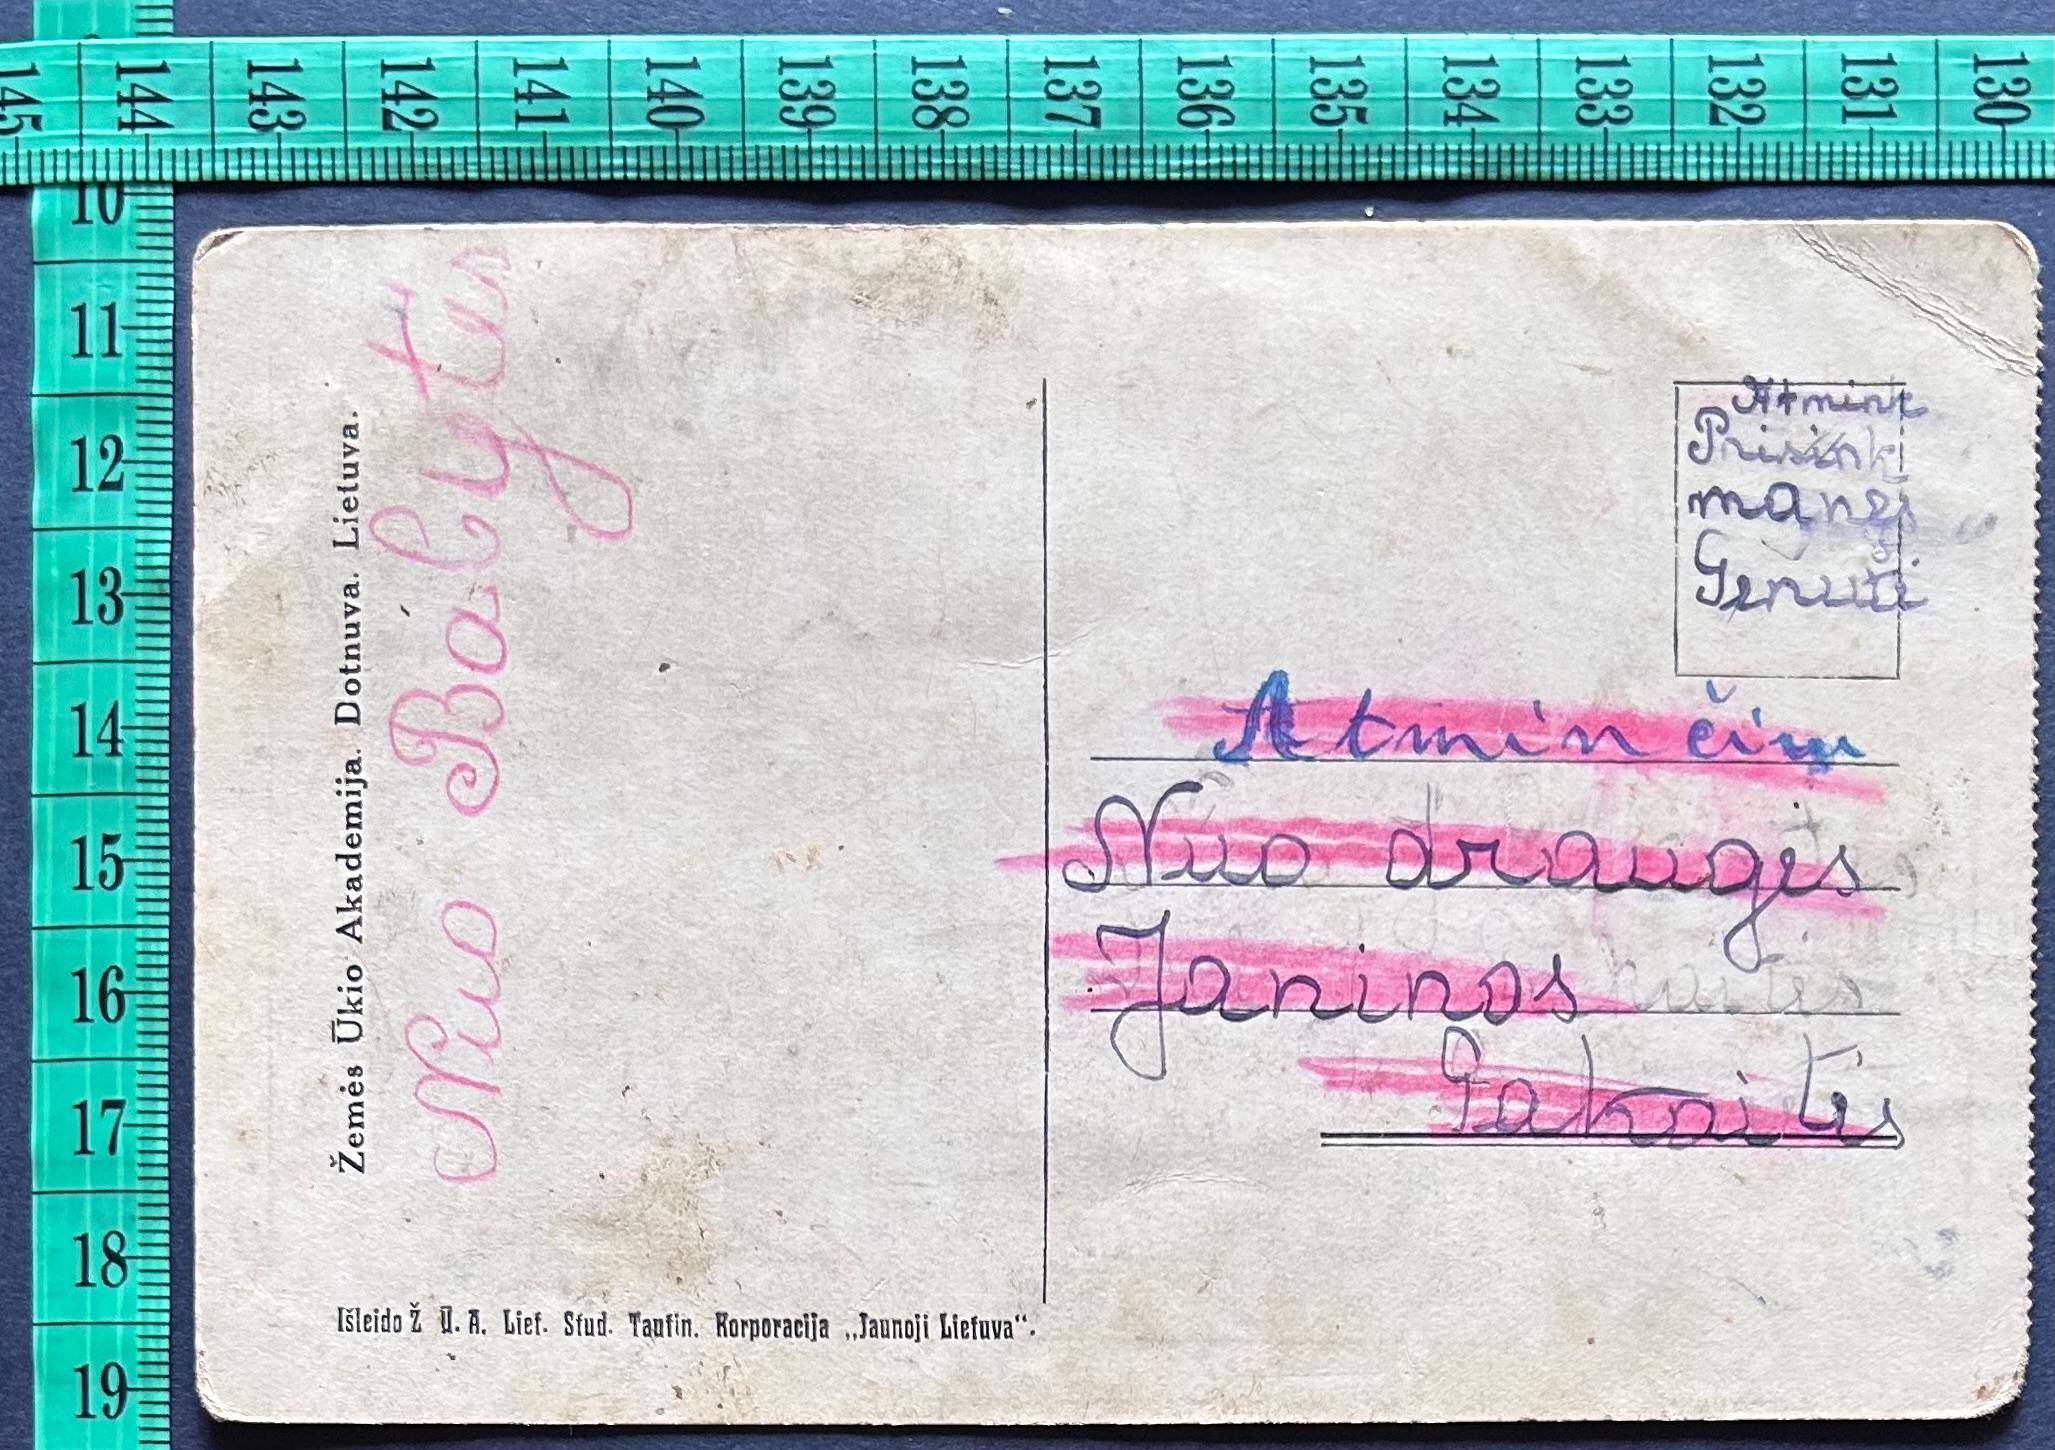 145 144 143 142 141 140 139 138 137 136 135 134 133 132 131 130
10
11
12
13
14
15
16
17
18
19
Žemės Ūkio Akademija. Dotnuva. Lietuva.
Nuo Balyts
Išleido Ž Ū. A. Liet. Stud. Tautin. Korporacija „Jaunoji Lietuva“.
Atmink
manęs
Genutė
Atminčių
Nuo draugės
Janinos